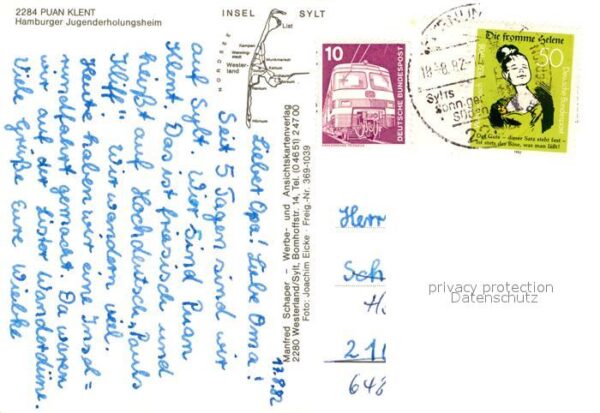 2284 PUAN KLENT
Hamburger Jugenderholungsheim
INSEL SYLT
NORDSEE
List
Kampen
Westerland
Keitum
Hörnum
17.8.82
Lieber Opa! Liebe Oma!
Seit 5 Tagen sind wir
auf Sylt. Wir sind Puan
Klent. Das ist friesisch und
heißt auf Hochdeutsch „Pauls
Kliff". Wir wandern viel.
Heute haben wir eine Insel=
rundfahrt gemacht. Da waren
wir auf der Lister Wanderdüne.
Viele Grüße Eure Wiebke
Manfred Schaper – Werbe- und Ansichtskartenverlag
2280 Westerland/Sylt, Bomhoffstr. 14, Tel. (0 46 51) 2 47 00
Foto: Joachim Eicke Freig.-Nr. 369-1039
10
DEUTSCHE BUNDESPOST
Die fromme Helene
50
Deutsche Bundespost
Das Gute – dieser Satz steht fest –
ist stets das Böse, was man läßt!
1982
18.-8.82
Sylts
Sonniger
Süden
Herr
Sch
211
648
privacy protection
Datenschutz